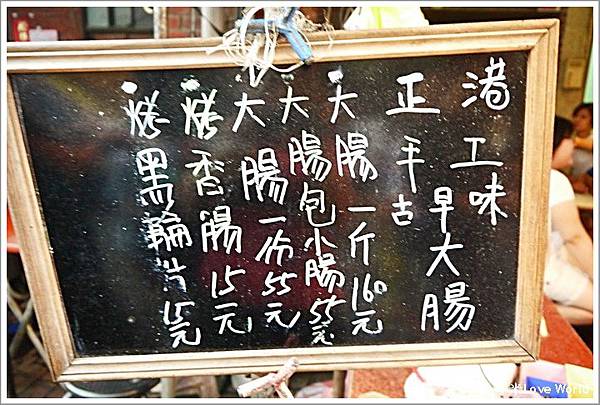 正港
手工
古早味
大腸
大腸一斤160元
大腸包小腸55元
大腸一份55元
烤香腸15元
烤黑輪片15元
Love World